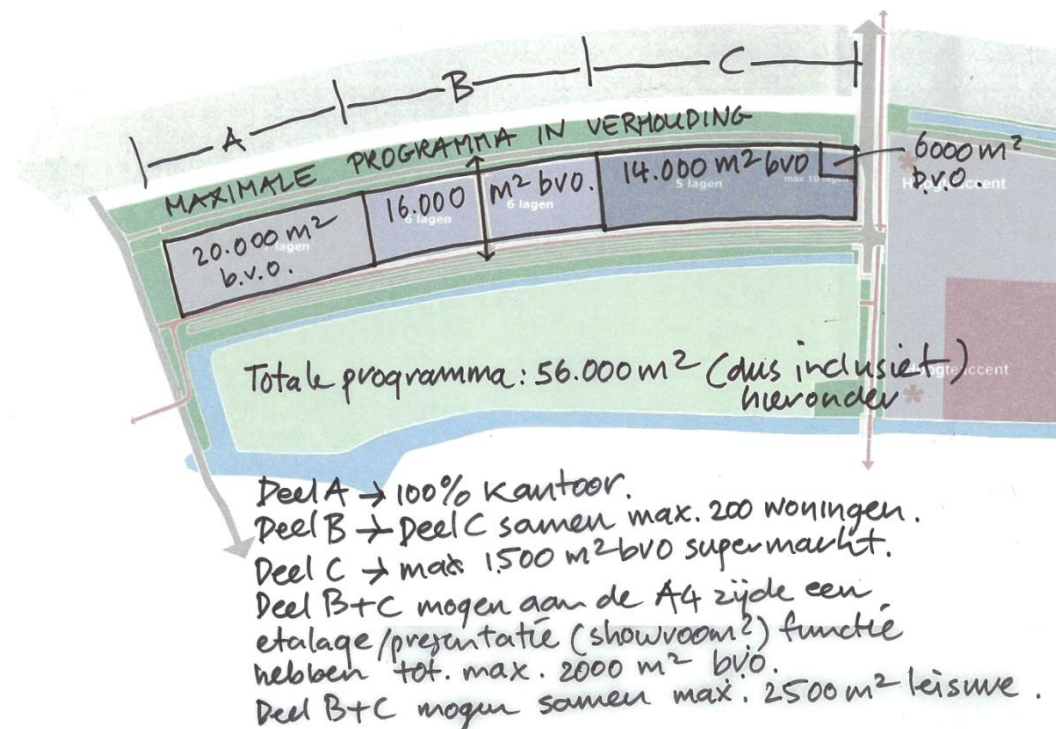 A
B
C
MAXIMALE PROGRAMMA IN VERHOUDING
20.000 m²
b.v.o.
lagen
16.000
6 lagen
m² bvo.
6 lagen
14.000 m² bvo
5 lagen
max 10 lagen
6000 m²
b.v.o.
Hoogteaccent
Totale programma: 56.000 m² (dus inclusief)
hieronder
Hoogteaccent
Deel A → 100% kantoor.
Deel B → Deel C samen max. 200 woningen.
Deel C → max 1500 m² bvo supermarkt.
Deel B+C mogen aan de A4 zijde een
etalage/presentatie (showroom?) functie
hebben tot. max. 2000 m² bvo.
Deel B+C mogen samen max. 2500 m² leisure.